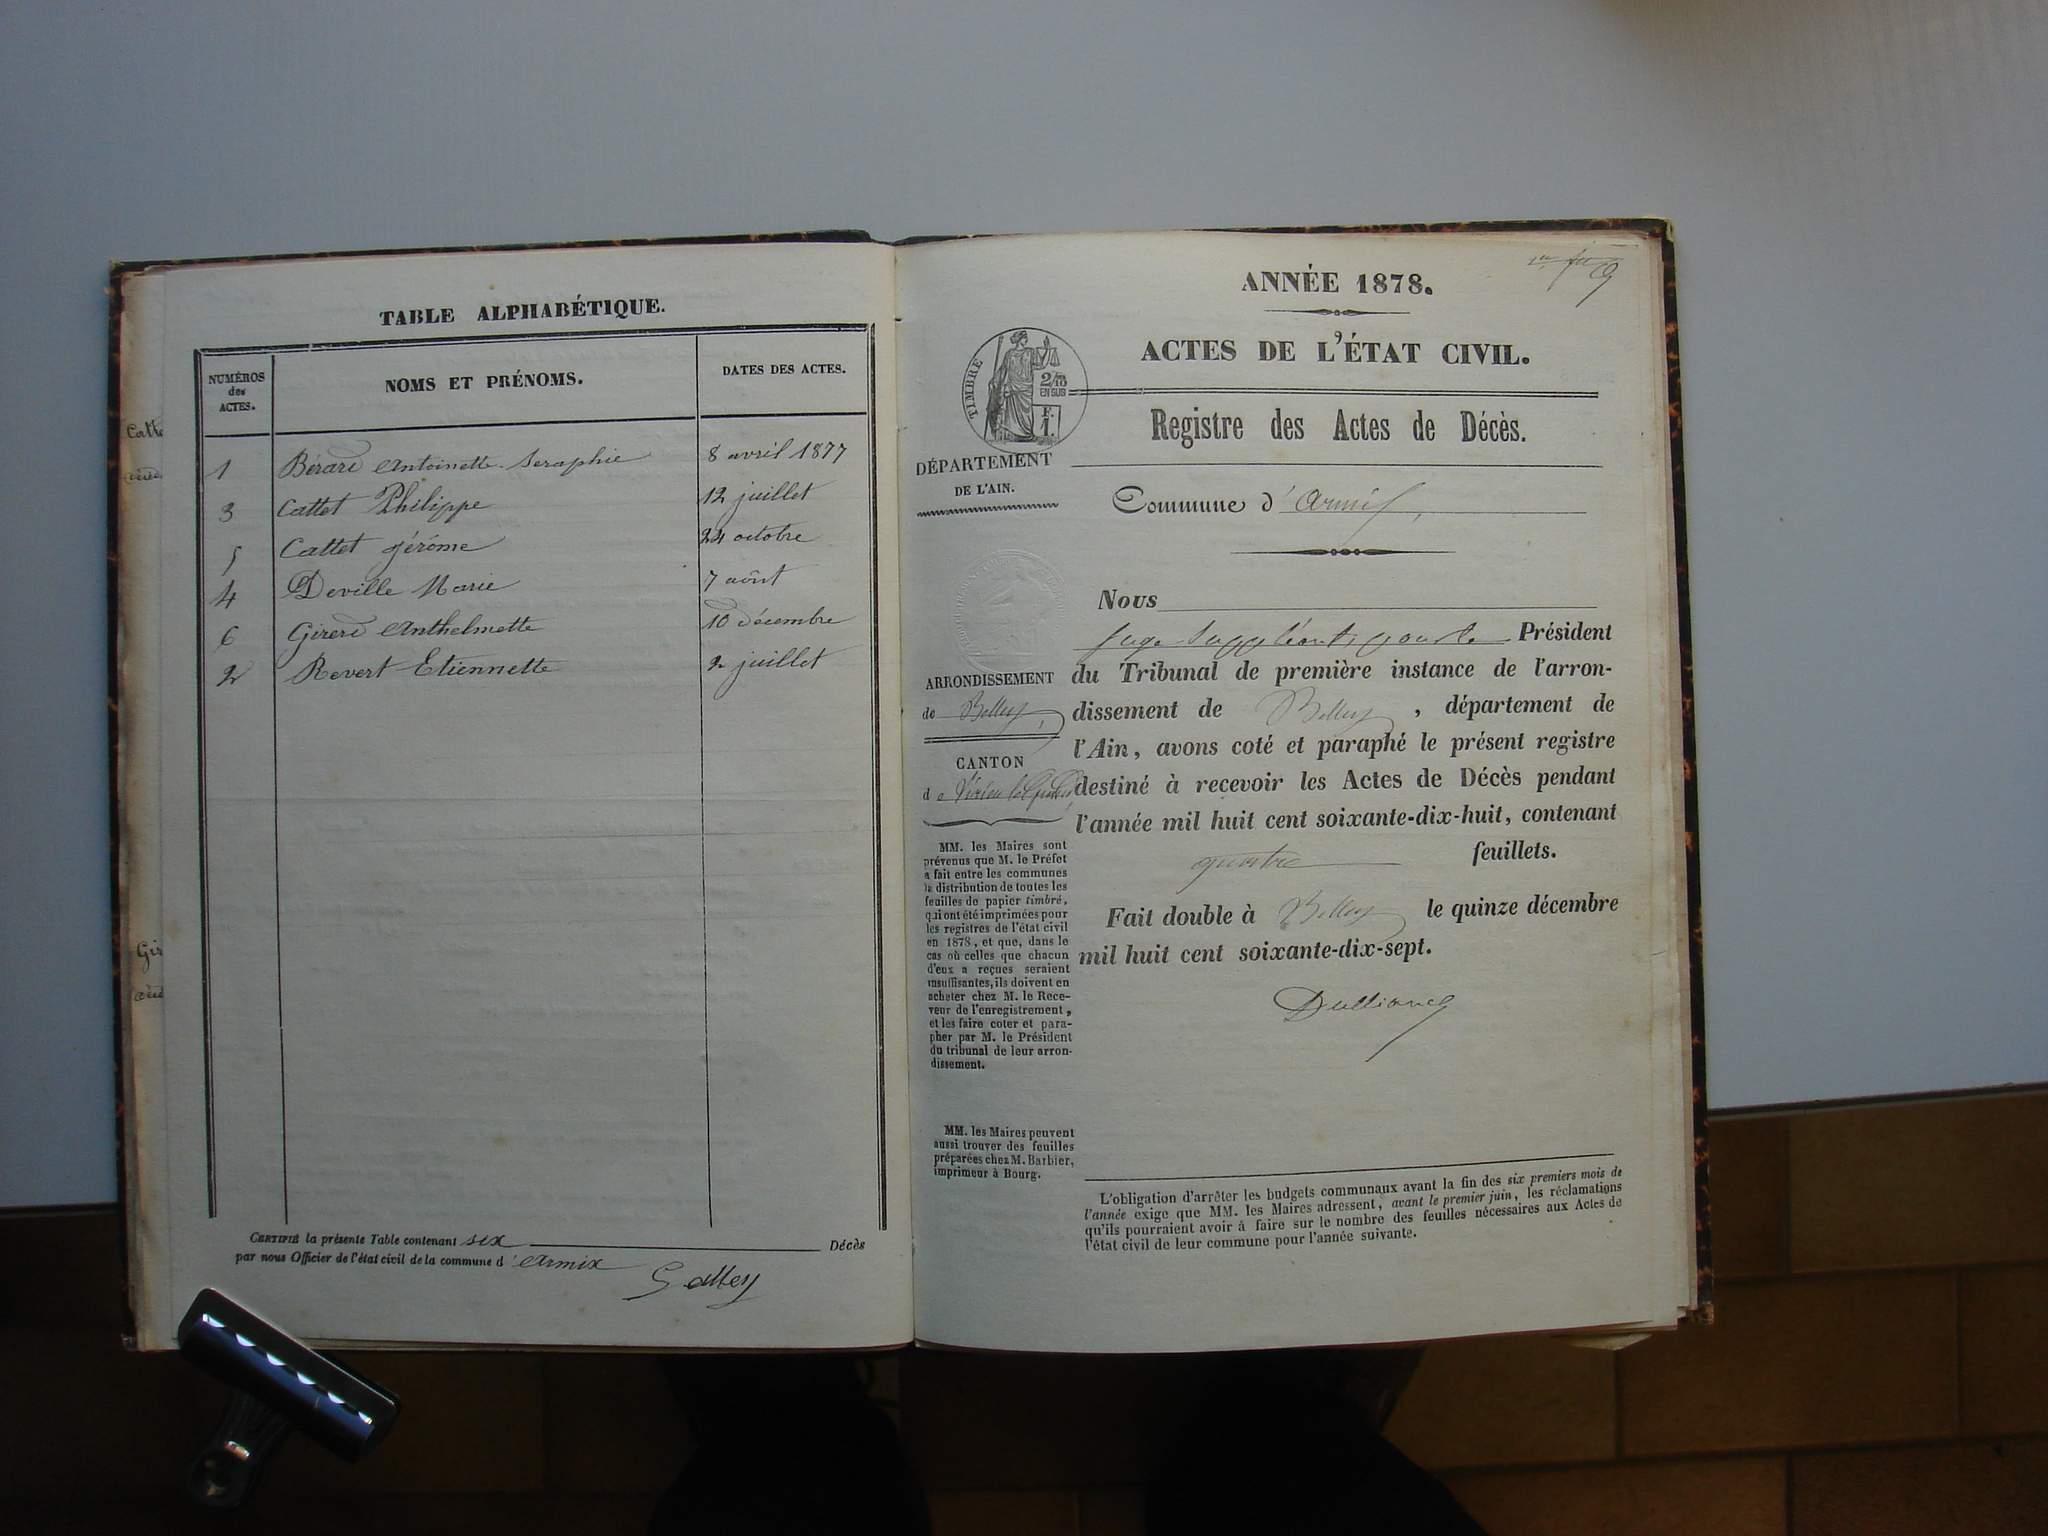 TABLE ALPHABÉTIQUE.
NUMÉROS
des
ACTES.
NOMS ET PRÉNOMS.
DATES DES ACTES.
1 Bérard Antoinette Seraphie 8 avril 1877
3 Cattet Philippe 12 juillet
5 Cattet Jérôme 24 octobre
4 Deville Marie 7 août
6 Girerd Anthelmette 10 décembre
2 Revert Etiennette 2 juillet
CERTIFIÉ la présente Table contenant six Décès
par nous Officier de l'état civil de la commune d'Armix
Catte
Gir
9
ANNÉE 1878.
ACTES DE L'ÉTAT CIVIL.
TIMBRE
2/10
EN SUS
F.
1.
Registre des Actes de Décès.
DÉPARTEMENT
DE L'AIN.
Commune d'Armix
ARRONDISSEMENT
de Belley
CANTON
de Virieu le Grand
MM. les Maires sont
prévenus que M. le Préfet
a fait entre les communes
la distribution de toutes les
feuilles de papier timbré,
qui ont été imprimées pour
les registres de l'état civil
en 1878, et que, dans le
cas où celles que chacun
d'eux a reçues seraient
insuffisantes, ils doivent en
acheter chez M. le Rece-
veur de l'enregistrement,
et les faire coter et para-
pher par M. le Président
du tribunal de leur arron-
dissement.
MM. les Maires peuvent
aussi trouver des feuilles
préparées chez M. Barbier,
imprimeur à Bourg.
Nous
Juge Suppléant, pour le Président
du Tribunal de première instance de l'arron-
dissement de Belley, département de
l'Ain, avons coté et paraphé le présent registre
destiné à recevoir les Actes de Décès pendant
l'année mil huit cent soixante-dix-huit, contenant
quatre feuillets.
Fait double à Belley le quinze décembre
mil huit cent soixante-dix-sept.
L'obligation d'arrêter les budgets communaux avant la fin des six premiers mois de
l'année exige que MM. les Maires adressent, avant le premier juin, les réclamations
qu'ils pourraient avoir à faire sur le nombre des feuilles nécessaires aux Actes de
l'état civil de leur commune pour l'année suivante.